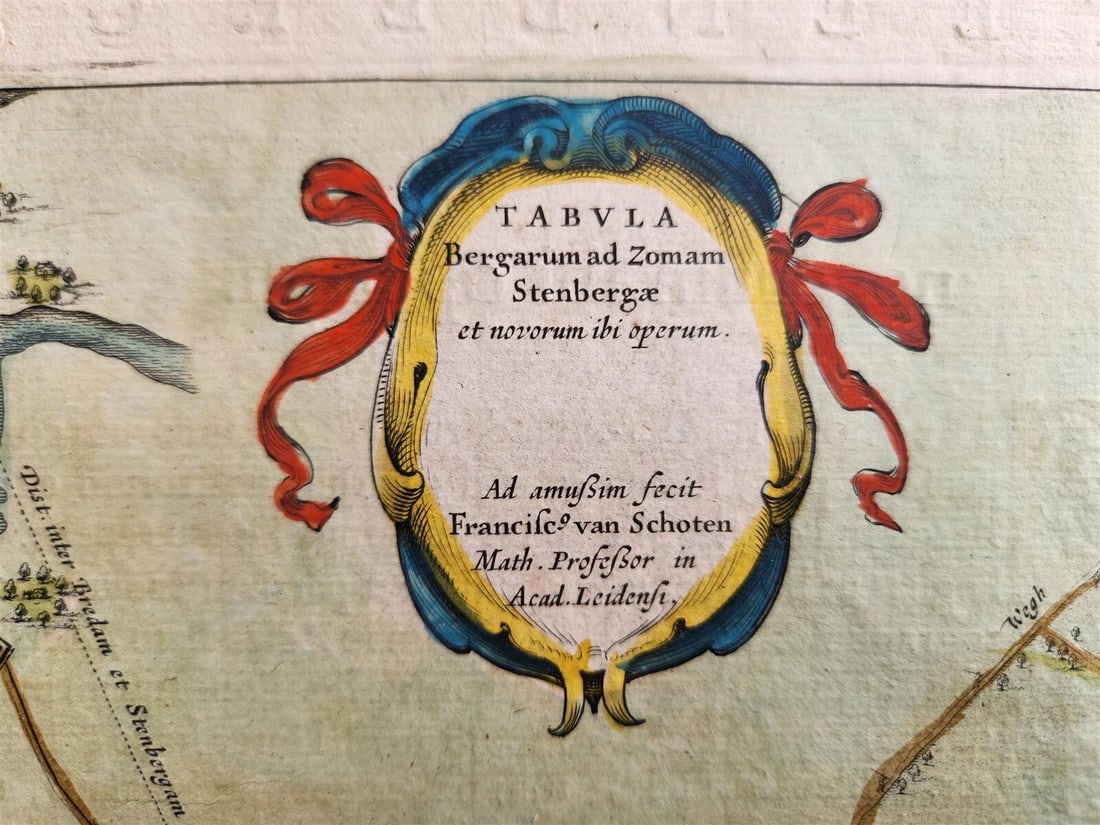 TABVLA
Bergarum ad Zomam
Stenbergæ
et novorum ibi operum.
Ad amußim fecit
Franciſcꝰ van Schoten
Math. Profeßor in
Acad. Leidenſi,
Dist. inter Bredam et Stenbergam
Wegh